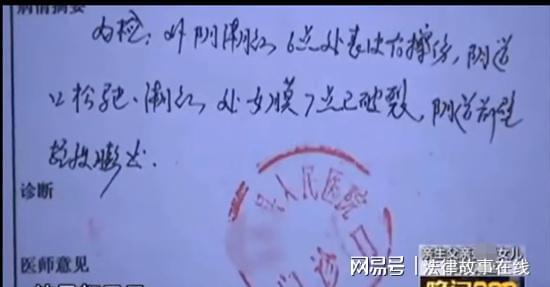 病情摘要
妇检:外阴潮红,6点处表皮有擦伤,阴道
口松弛、潮红,处女膜7点已破裂,阴道前壁
轻度膨出.
诊断
县人民医院
门诊
医师意见
亲生父亲 女儿
网易号 法律故事在线